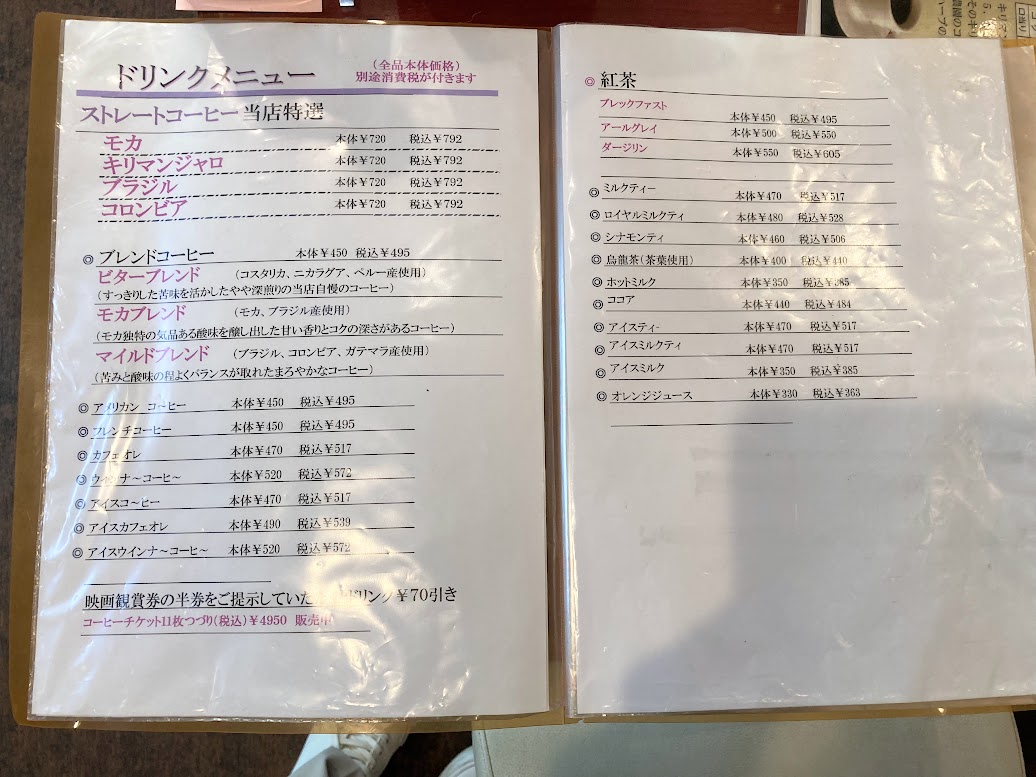 ドリンクメニュー
（全品本体価格）
別途消費税が付きます
ストレートコーヒー当店特選
モカ 本体￥720 税込￥792
キリマンジャロ 本体￥720 税込￥792
ブラジル 本体￥720 税込￥792
コロンビア 本体￥720 税込￥792
◎ ブレンドコーヒー 本体￥450 税込￥495
ビターブレンド （コスタリカ、ニカラグア、ペルー産使用）
（すっきりした苦味を活かしたやや深煎りの当店自慢のコーヒー）
モカブレンド （モカ、ブラジル産使用）
（モカ独特の気品ある酸味を醸し出した甘い香りとコクの深さがあるコーヒー）
マイルドブレンド （ブラジル、コロンビア、ガテマラ産使用）
（苦みと酸味の程よくバランスが取れたまろやかなコーヒー）
◎ アメリカン コ～ヒー 本体￥450 税込￥495
◎ フレンチコーヒー 本体￥450 税込￥495
◎ カフェオレ 本体￥470 税込￥517
◎ ウインナ～コーヒ～ 本体￥520 税込￥572
◎ アイスコ～ヒー 本体￥470 税込￥517
◎ アイスカフェオレ 本体￥490 税込￥539
◎ アイスウインナ～コーヒ～ 本体￥520 税込￥572
映画観賞券の半券をご提示していた ドリンク￥70引き
コーヒーチケット11枚つづり（税込）￥4950 販売中
◎ 紅茶
ブレックファスト 本体￥450 税込￥495
アールグレイ 本体￥500 税込￥550
ダージリン 本体￥550 税込￥605
◎ ミルクティー 本体￥470 税込￥517
◎ ロイヤルミルクティ 本体￥480 税込￥528
◎ シナモンティ 本体￥460 税込￥506
◎ 烏龍茶（茶葉使用） 本体￥400 税込￥440
◎ ホットミルク 本体￥350 税込￥385
◎ ココア 本体￥440 税込￥484
◎ アイスティ- 本体￥470 税込￥517
◎ アイスミルクティ 本体￥470 税込￥517
◎ アイスミルク 本体￥350 税込￥385
◎ オレンジジュース 本体￥330 税込￥363